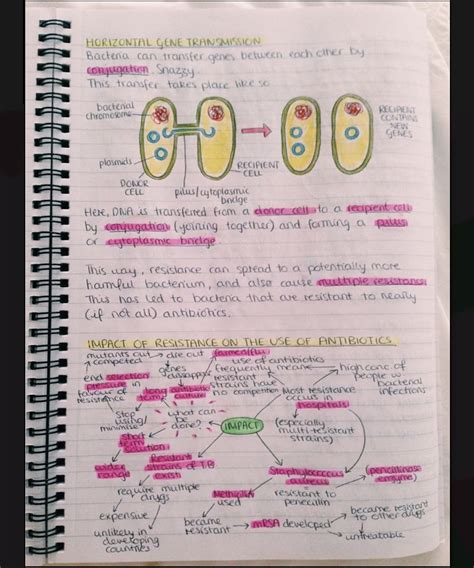 HORIZONTAL GENE TRANSMISSION
Bacteria can transfer genes between each other by
conjugation. Snazzy.
This transfer takes place like so:
bacterial
chromosome
plasmids
DONOR
CELL
pilus/cytoplasmic
bridge
RECIPIENT
CELL
RECIPIENT
CONTAINS
NEW
GENES
Here, DNA is transferred from a donor cell to a recipient cell
by conjugation (joining together) and forming a pilus
or cytoplasmic bridge.
This way, resistance can spread to a potentially more
harmful bacterium, and also cause multiple resistance.
This has led to bacteria that are resistant to nearly
(if not all) antibiotics.
IMPACT OF RESISTANCE ON THE USE OF ANTIBIOTICS
mutants out
competed
die out
use of antibiotics
frequently means
resistant
strains have
no competition
high conc of
people w
bacterial
infections
end selection
pressure in
favour of
resistance
genes
disappear
long
term
antibiotic
culture
Most resistance
occurs in
hospitals
(especially
multi-resistant
strains)
stop
using/
minimise
what can
be
done?
IMPACT
short
term
solution
wider
range
Resistant
strains of TB
exist
require multiple
drugs
expensive
unlikely in
developing
countries
Staphylococcus
aureus
(penicillinase
enzyme)
resistant to
penicillin
used
became
resistant
MRSA developed
became resistant
to other drugs
untreatable